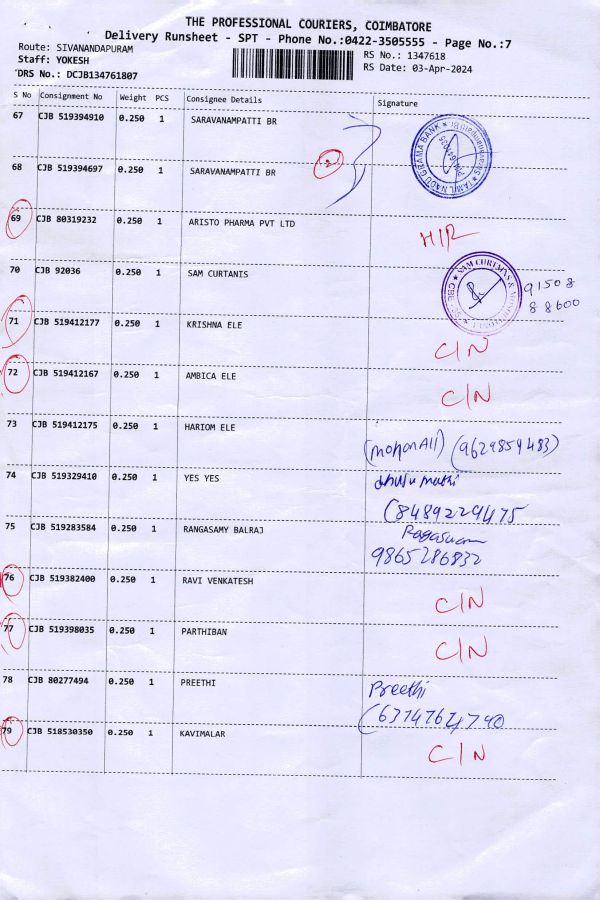 THE PROFESSIONAL COURIERS, COIMBATORE
Delivery Runsheet - SPT - Phone No.:0422-3505555 - Page No.:7
Route: SIVANANDAPURAM
RS No.: 1347618
Staff: YOKESH
RS Date: 03-Apr-2024
DRS No.: DCJB134761807
S No Consignment No Weight PCS Consignee Details Signature
67 CJB 519394910 0.250 1 SARAVANAMPATTI BR
TAMIL NADU GRAMA BANK
2
68 CJB 519394697 0.250 1 SARAVANAMPATTI BR
69 CJB 80319232 0.250 1 ARISTO PHARMA PVT LTD
H/R
70 CJB 92036 0.250 1 SAM CURTANIS
SAM CURTAINS &
91508
88600
71 CJB 519412177 0.250 1 KRISHNA ELE
C/N
72 CJB 519412167 0.250 1 AMBICA ELE
C/N
73 CJB 519412175 0.250 1 HARIOM ELE
(9629859483)
74 CJB 519329410 0.250 1 YES YES
(8489229475
75 CJB 519283584 0.250 1 RANGASAMY BALRAJ
9865286832
76 CJB 519382400 0.250 1 RAVI VENKATESH
C/N
77 CJB 519398035 0.250 1 PARTHIBAN
C/N
78 CJB 80277494 0.250 1 PREETHI
Preethi
(6374764740
79 CJB 518530350 0.250 1 KAVIMALAR
C/N